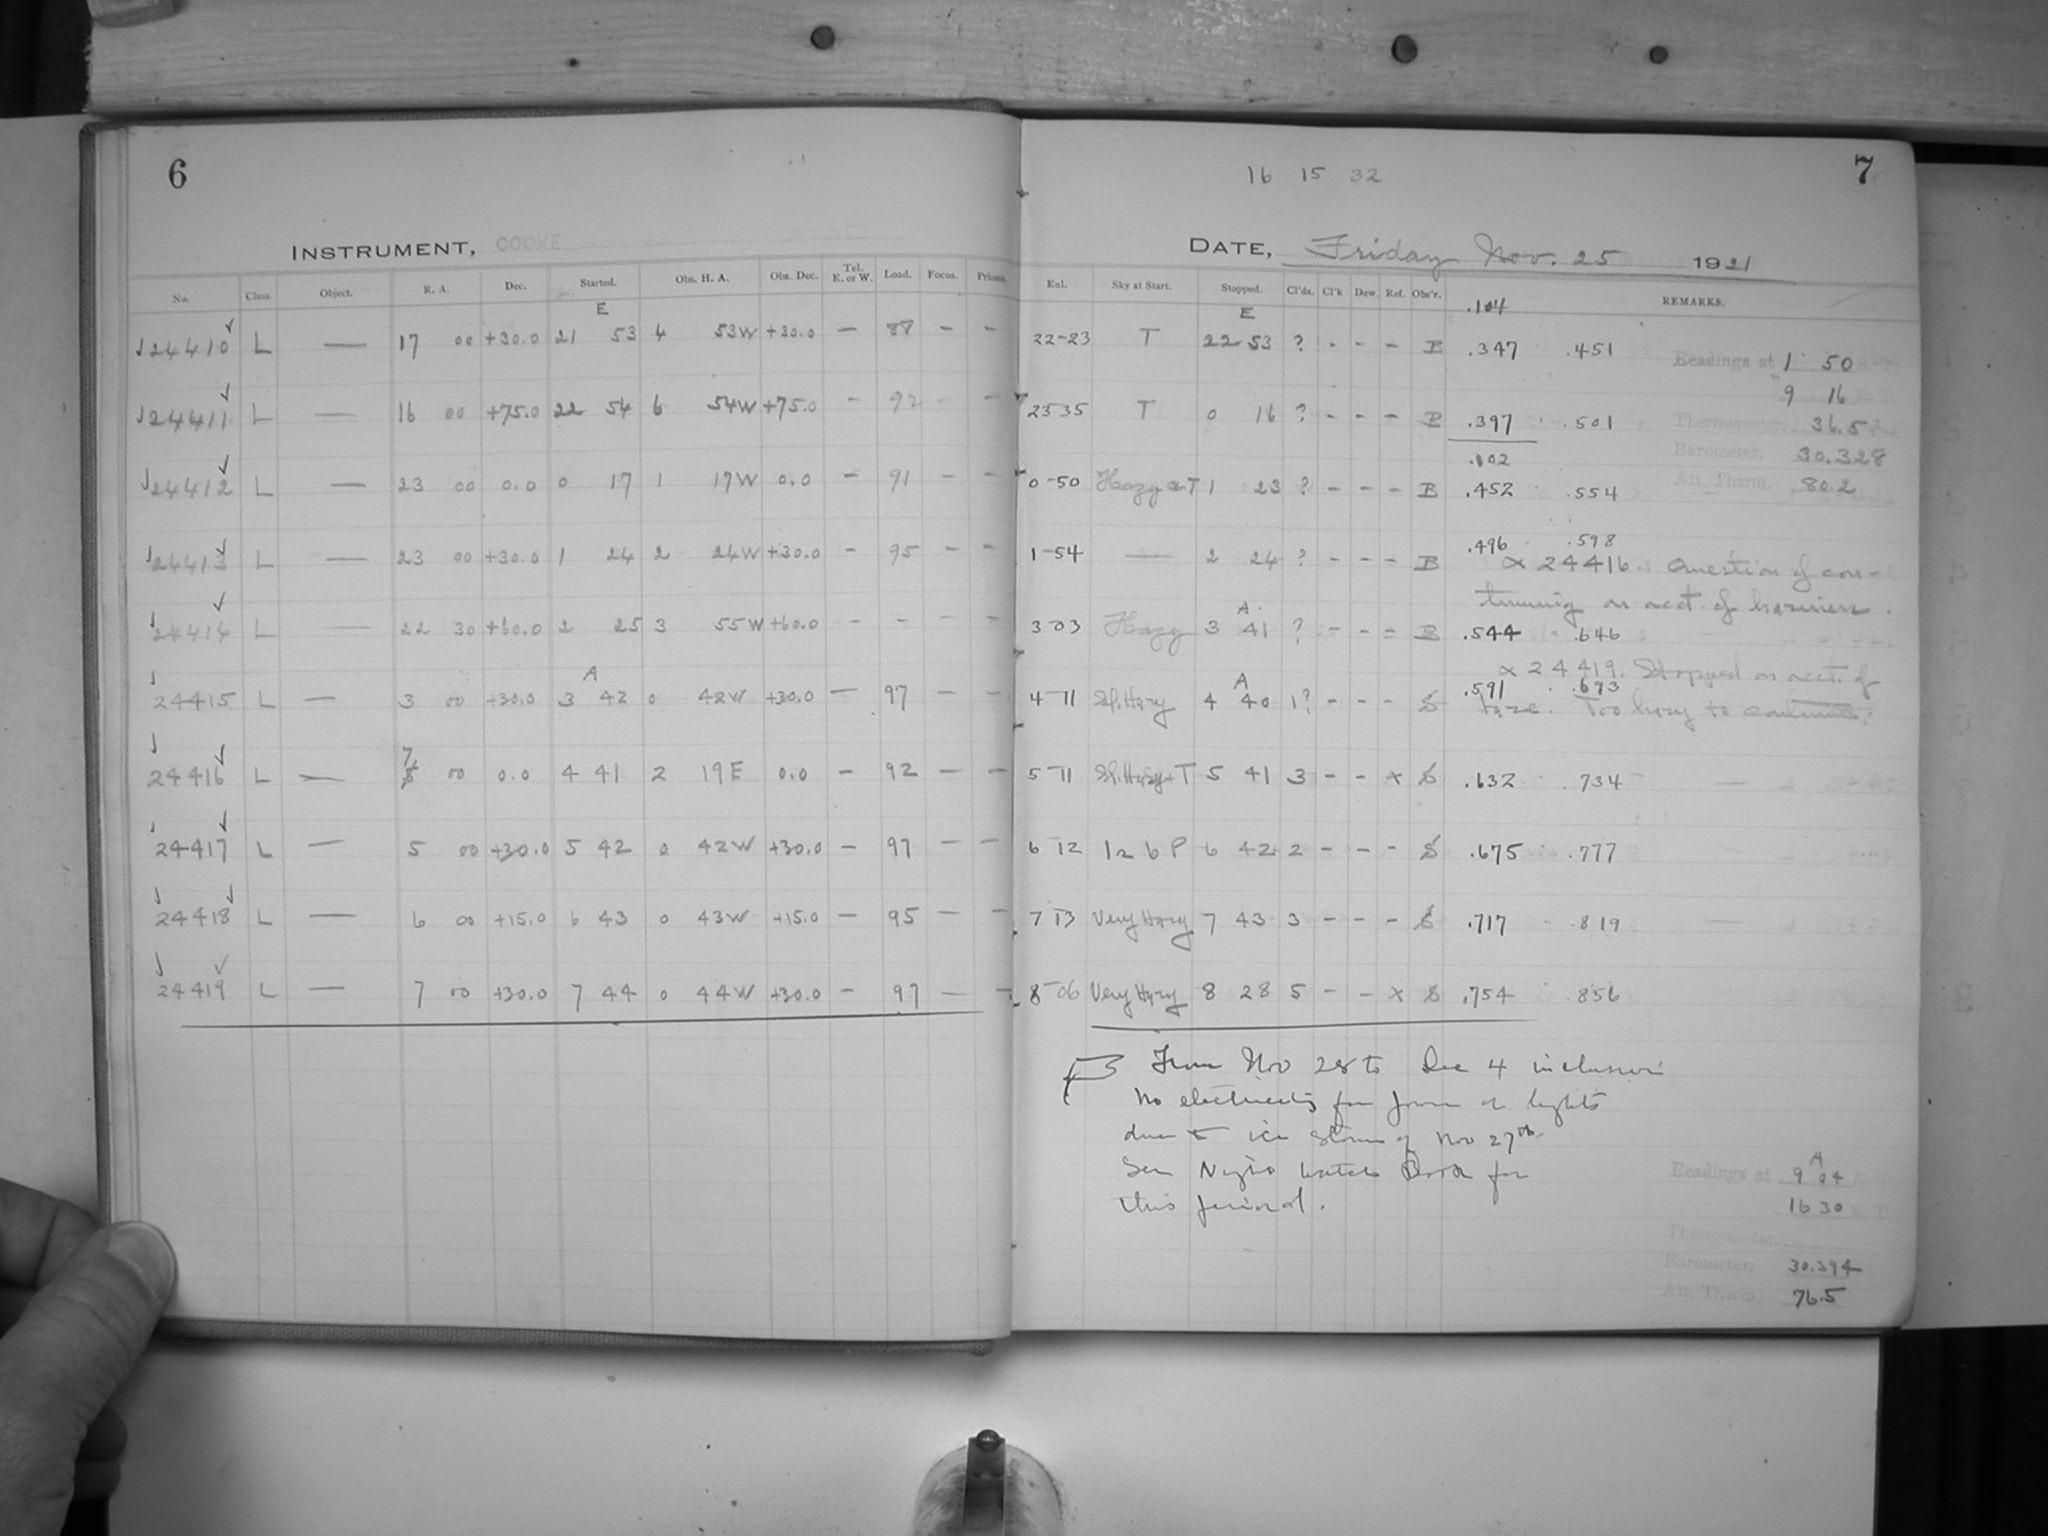 6
INSTRUMENT, COOKE
No. Class. Object. R. A. Dec. Started. Obs. H. A. Obs. Dec. Tel. E. or W. Load. Focus. Prisms.
E
24410 L — 17 00 +30.0 21 53 4 53W +30.0 — 88 — —
24411 L — 16 00 +75.0 22 54 6 54W +75.0 - 92 — —
24412 L — 23 00 0.0 0 17 1 17W 0.0 — 91 — —
24413 L — 23 00 +30.0 1 24 2 24W +30.0 - 95 — —
24414 L — 22 30 +60.0 2 25 3 55W +60.0 - - - -
A
24415 L — 3 00 +30.0 3 42 0 42W +30.0 — 97 — —
24416 L — 7 00 0.0 4 41 2 19E 0.0 - 92 — —
24417 L — 5 00 +30.0 5 42 0 42W +30.0 — 97 — —
24418 L — 6 00 +15.0 6 43 0 43W +15.0 — 95 — —
24419 L — 7 00 +30.0 7 44 0 44W +30.0 — 97 — —
7
16 15 32
DATE, Friday Nov. 25 1921
Enl. Sky at Start. Stopped. Cl'ds. Cl'k Dew. Ref. Obs'r. REMARKS.
.104
E
22-23 T 22 53 ? - - - B .347 .451
Readings at 1 50
9 16
23 35 T 0 16 ? - - - B .397 .501
Thermometer. 36.5
Barometer. 30.328
.102
0-50 Hazy & T 1 23 ? - - - B .452 .554
Att. Therm. 80.2
1-54 — 2 24 ? - - - B .496 .598
x 24416. Question of con-
tinuing on acct. of haziness.
A
3-03 Hazy 3 41 ? - - - B .544 .646
x 24419. Stopped on acct. of
haze. Too hazy to continue.
A
4-11 Sl. Hazy 4 40 1? - - - S .591 .693
5-11 Sl. Hazy + T 5 41 3 - - x S .632 .734
6 12 1 2 6 P 6 42 2 - - - S .675 .777
7 13 Very Hazy 7 43 3 - - - S .717 .819
8-06 Very Hazy 8 28 5 - - x S .754 .856
From Nov 28 to Dec 4 inclusive
No electricity for power or lights
due to ice storm of Nov 27th
See Night Watch Book for
this period.
Readings at 9 04
A
16 30
Thermometer.
Barometer. 30.394
Att. Therm. 76.5